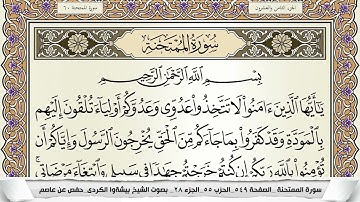 الجزء الثامن والعشرون
سورة الممتحنة ٦٠
سُورَةُ الْمُمْتَحَنَةِ
بِسْمِ اللَّهِ الرَّحْمَٰنِ الرَّحِيمِ
يَا أَيُّهَا الَّذِينَ ءَامَنُوا لَا تَتَّخِذُوا عَدُوِّي وَعَدُوَّكُمْ أَوْلِيَاءَ تُلْقُونَ إِلَيْهِم
بِالْمَوَدَّةِ وَقَدْ كَفَرُوا بِمَا جَاءَكُم مِّنَ الْحَقِّ يُخْرِجُونَ الرَّسُولَ وَإِيَّاكُمْ أَن
تُؤْمِنُوا بِاللَّهِ رَبِّكُمْ إِن كُنتُمْ خَرَجْتُمْ جِهَادًا فِي سَبِيلِي وَابْتِغَاءَ مَرْضَاتِي
سورة الممتحنة_ الصفحة ٥٤٩_ الحزب ٥٥_ الجزء ٢٨_ بصوت الشيخ بيشەوا الكردي_ حفص عن عاصم